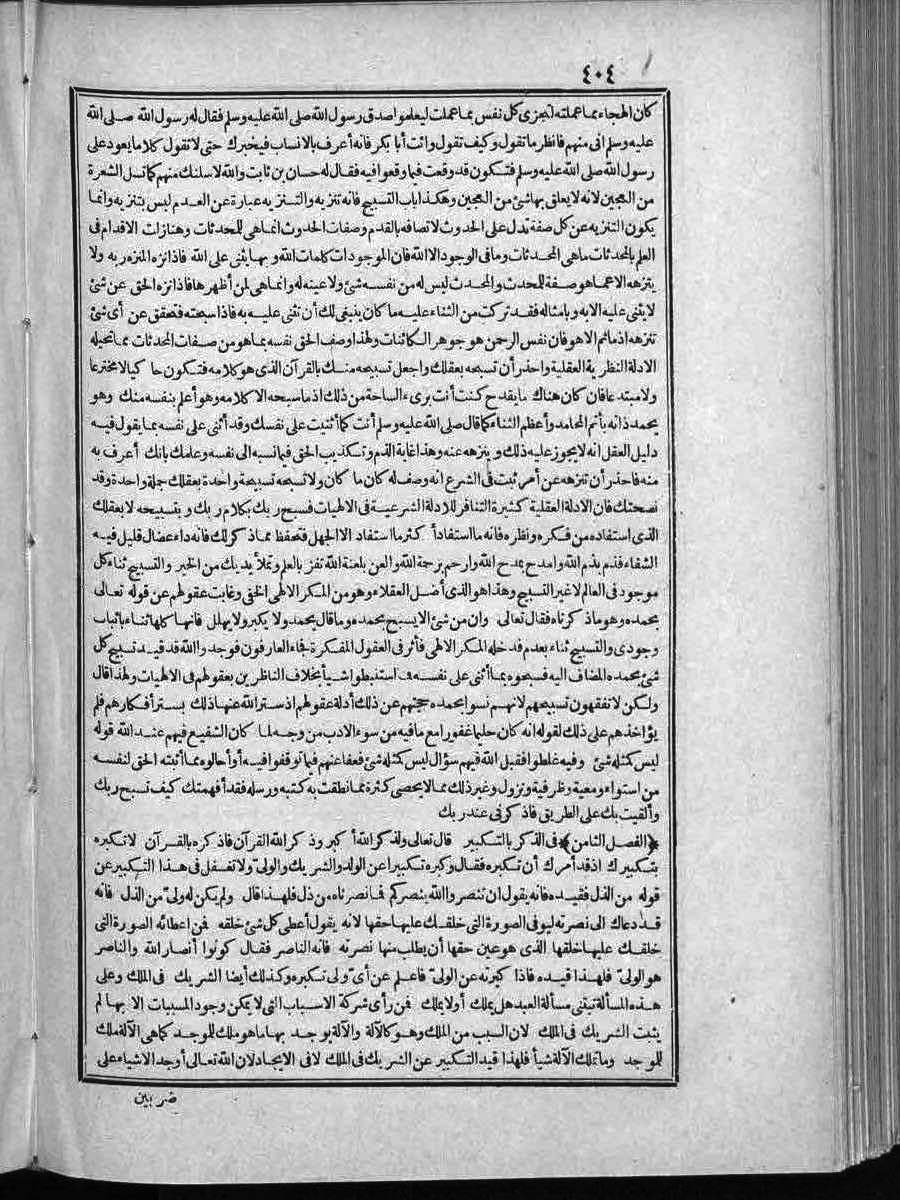 ٤٠٤
كان الهجاء مما عملته لتجزى كل نفس بما عملت ليعلموا صدق رسول الله صلى الله عليه وسلم فقال له رسول الله صلى الله
عليه وسلم انى منهم فانظر ما تقول وكيف تقول وائت أبا بكر فانه أعرف بالانساب فيخبرك حتى لا تقول كلاما يعود على
رسول الله صلى الله عليه وسلم فتكون قد وقعت فيما وقعوا فيه فقال له حسان بن ثابت والله لاسلنك منهم كما تسل الشعرة
من العجين لانه لا يعلق بها شئ من العجين وهكذا باب التسبيح فانه تنزيه والتنزيه عبارة عن العدم ليس بتنزيه وانما
يكون التنزيه عن كل صفة تدل على الحدوث لاتصافه بالقدم وصفات الحدوث انما هى للمحدثات وهنا زلت الاقدام فى
العلم بالمحدثات ما هى المحدثات وما فى الوجود الا الله فان الموجودات كلمات الله و بها يثنى على الله فاذا نزه المنزه ربه ولا
ينزهه الا عما هو صفة للمحدث والمحدث ليس له من نفسه شئ ولا عينه له وانما هى لمن أظهرها فاذا نزه الحق عن شئ
لا يثنى عليه الا به و بامثاله فقد تركت من الثناء عليه ما كان ينبغى لك أن تثنى عليه به فاذا سبحته فتحقق عن أى شئ
تنزهه اذ ما ثم الا هو فان نفس الرحمن هو جوهر الكائنات ولهذا وصف الحق نفسه بما هو من صفات المحدثات مما تحيله
الادلة النظرية العقلية واحذر أن تسبحه بعقلك واجعل تسبيحه منك بالقرآن الذى هو كلامه فتكون حا كيا لا مخترعا
ولا مبتدعا فان كان هناك ما يقدح كنت أنت برىء الساحة من ذلك اذ ما سبحه الا كلامه وهو أعلم بنفسه منك وهو
يحمد ذاته بأتم المحامد وأعظم الثناء كما قال صلى الله عليه وسلم أنت كما أثنيت على نفسك وقد أثنى على نفسه بما يقول فيه
دليل العقل انه لا يجوز عليه ذلك و ينزهه عنه وهذا غاية الذم وتكذيب الحق فيما نسبه الى نفسه وعلمك بانك أعرف به
منه فاحذر أن تنزهه عن أمر ثبت فى الشرع انه وصف له كان ما كان ولا تسبحه تسبيحة واحدة بعقلك جملة واحدة وقد
نصحتك فان الادلة العقلية كثيرة التنافر للادلة الشرعية فى الالهيات فسبح ربك بكلام ربك و بتسبيحه لا بعقلك
الذى استفاده من فكره ونظره فانه ما استفاد أكثر ما استفاد الا الجهل فتحفظ مما ذكرته لك فانه داء عضال قليل فيه
الشفاء فذم بذم الله وامدح بمدح الله وارحم برحمة الله والعن بلعنة الله تفز بالعلم وتملأ يديك من الخير والتسبيح ثناء كل
موجود فى العالم لا غير التسبيح وهذا هو الذى أضل العقلاء وهو من المكر الالهى الخفى وغابت عقولهم عن قوله تعالى
بحمده وهو ما ذكرناه فقال تعالى وان من شئ الا يسبح بحمده وما قال يحمد ولا يكبر ولا يهلل فانها كلها ثناء باثبات
وجودى والتسبيح ثناء بعدم فدخله المكر الالهى فأثر فى العقول المفكرة فجاء العارفون فوجدوا الله قد قيد تسبيح كل
شئ بحمده المضاف اليه فسبحوه بما أثنى على نفسه فما استنبطوا شيأ بخلاف الناظرين بعقولهم فى الالهيات ولهذا قال
ولكن لا تفقهون تسبيحهم لانهم نسوا بحمده حجتهم عن ذلك أدلة عقولهم اذ ستر الله عنها ذلك بستر أفكارهم فلم
يؤاخذهم على ذلك لقوله انه كان حليما غفورا مع ما فيه من سوء الادب من وجه لما كان الشفيع فيهم عند الله قوله
ليس كمثله شئ وفيه غلطوا فقبل الله فيهم سؤال ليس كمثله شئ فعفا عنهم فيما توقفوا فيه أو أحالوه مما أثبته الحق لنفسه
من استواء ومعية وظرفية ونزول وغير ذلك مما لا يحصى كثرة مما نطقت به كتبه ورسله فقد أفهمتك كيف تسبح ربك
وألقيت بك على الطريق فاذكر فى عند ربك
﴿الفصل الثامن﴾ فى الذكر بالتكبير قال تعالى ولذكر الله أكبر وذكر الله القرآن فاذكره بالقرآن لا تكبره
بتكبيرك اذ قد أمرك أن تكبره فقال وكبره تكبيرا عن الولد والشريك والولىّ ولا تغفل فى هذا التكبير عن
قوله من الذل فقيده فانه يقول ان تنصروا الله ينصركم فما نصرناه من ذل فلهذا قال ولم يكن له ولىّ من الذل فانه
قد دعاك الى نصرته ليوفى الصورة التى خلقك عليها حقها لانه يقول أعطى كل شئ خلقه فمن اعطائه الصورة التى
خلقك عليها خلقها الذى هو عين حقها أن يطلب منها نصرته فانه الناصر فقال كونوا أنصار الله والناصر
هو الولىّ فلهذا قيده فاذا كبرته عن الولىّ فاعلم عن أىّ ولى تكبره وكذلك أيضا الشريك فى الملك وعلى
هذه المسألة تبتنى مسألة العبد هل يملك أولا يملك فمن رأى شركة الاسباب التى لا يمكن وجود المسببات الا بها لم
يثبت الشريك فى الملك لان السبب من الملك وهو كالآلة والآلة يوجد بها ما هو ملك للموجد كما هى الآلة ملك
للموجد وما تملك الآلة شيأ فلهذا قيد التكبير عن الشريك فى الملك لا فى الايجاد لان الله تعالى أوجد الاشياء على
ضربين